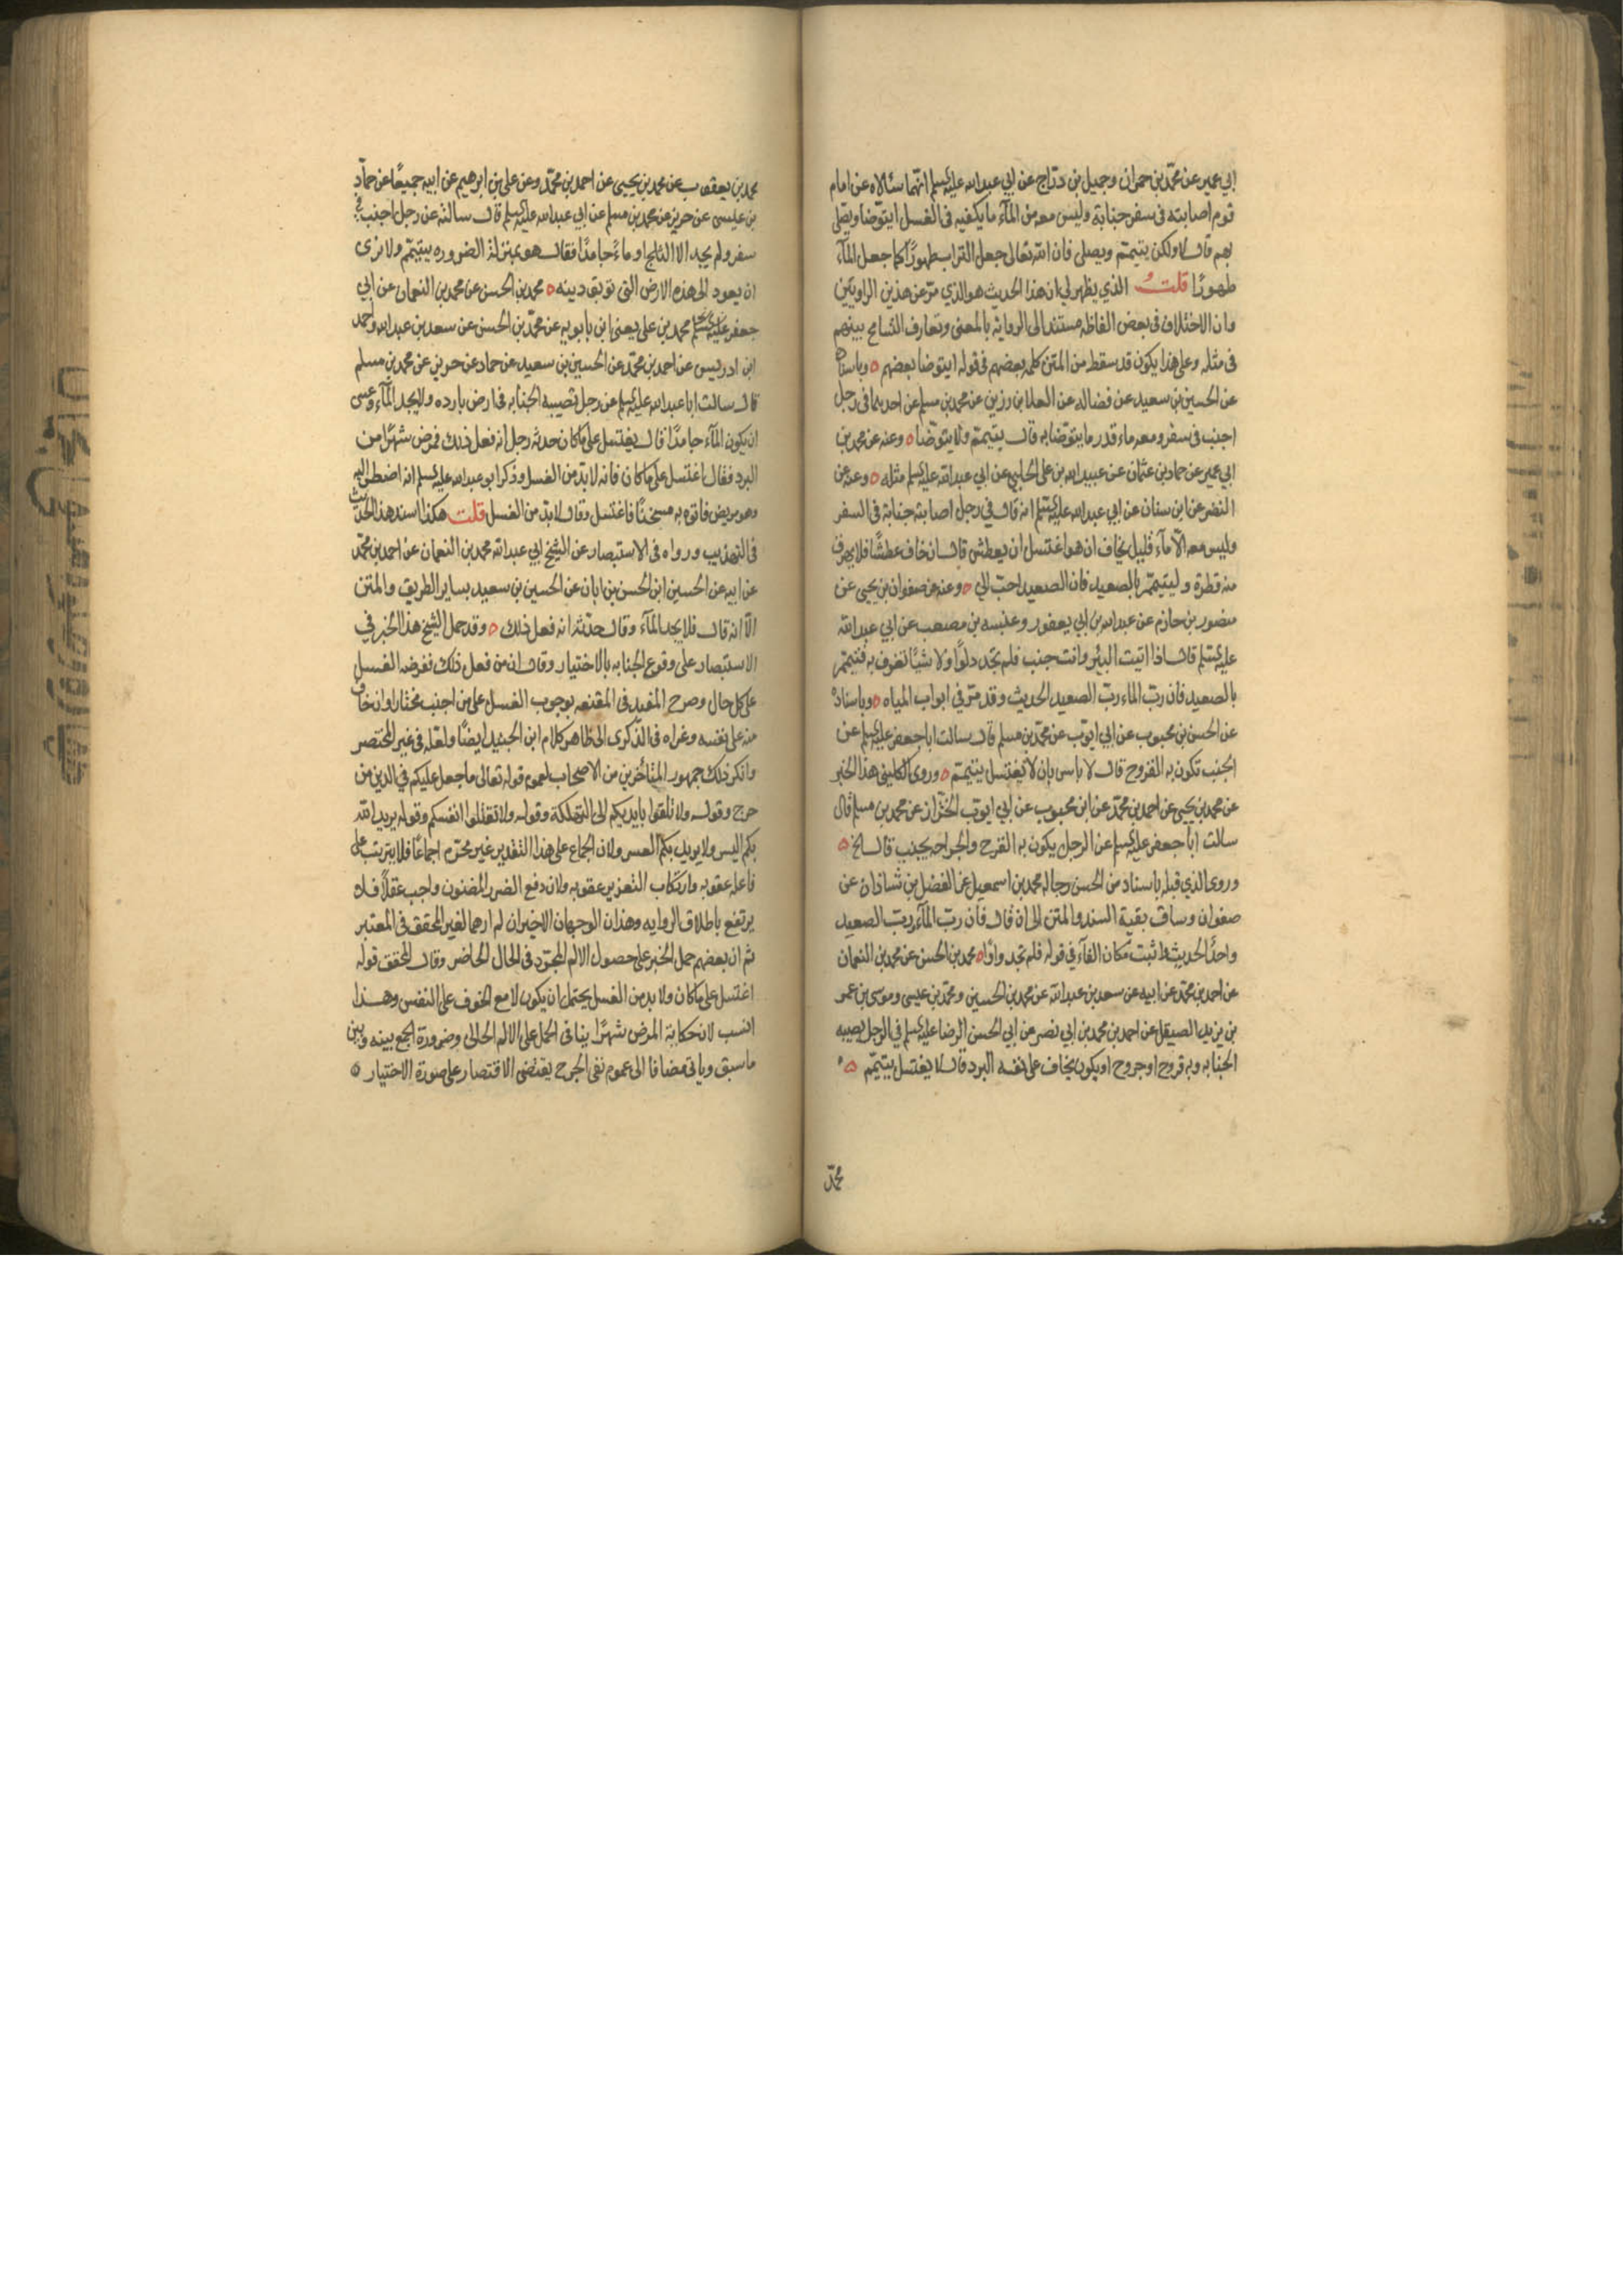 ابي عمير عن محمد بن حمران وجميل بن دراج عن ابي عبد الله عليه السلم انهما سئالاه عن امام
قوم اصابته في سفر جنابة وليس معه من المآء ما يكفيه في الغسل ايتوضا ويصلى
بهم قال لا ولكن يتيمم ويصلى فان الله تعالى جعل التراب طهورًا كما جعل المآء
طهورًا قلت الذي يظهر لي ان هذا الحديث هو الذي مرّ عن هذين الراويين
وان الاختلاف في بعض الفاظه مستند الى الرواية بالمعنى وتعارف التسامح بينهم
في مثله وعلى هذا يكون قد سقط من المتن كلمة بعضهم في قوله ايتوضا بعضهم ٥ وباسناده
عن الحسين بن سعيد عن فضاله عن العلا بن رزين عن محمد بن مسلم عن احدهما في رجل
اجنب في سفر ومعه ماء قدر ما يتوضا به قال يتيمم ولا يتوضا ٥ وعنه عن محمد بن
ابي عمير عن حماد بن عثمان عن عبيد الله بن على الحلبي عن ابي عبد الله عليه السلم مثله ٥ وعنه عن
النضر عن ابن سنان عن ابي عبد الله عليه السلم انه قال في رجل اصابته جنابة في السفر
وليس معه الا مآء قليل يخاف ان هو اغتسل ان يعطش قال ان خاف عطشًا فلا يهرق
منه قطرة وليتيمم بالصعيد فان الصعيد احبّ الي ٥ وعنه عن صفوان بن يحيى عن
منصور بن حازم عن عبد الله بن ابي يعفور وعنبسه بن مصعب عن ابي عبد الله
عليه السلم قال اذا اتيت البئر وانت جنب فلم تجد دلوًا ولا شيئًا تغرف به فتيمم
بالصعيد فان ربّ الماء ربّ الصعيد الحديث وقد مرّ في ابواب المياه ٥ وباسناده
عن الحسن بن محبوب عن ابي ايوب عن محمد بن مسلم قال سالت ابا جعفر عليه السلم عن
الجنب تكون به القروح قال لا باس بان لا يغتسل يتيمم ٥ وروى الكليني هذا الخبر
عن محمد بن يحيى عن احمد بن محمد عن ابن محبوب عن ابي ايوب الخزاز عن محمد بن مسلم قال
سالت ابا جعفر عليه السلم عن الرجل يكون به القرح والجراحه يجنب قال الخ ٥
وروى الذي قبله باسناد من الحسن رجاله محمد بن اسمعيل عن الفضل بن شاذان عن
صفوان وساق بقية السند والمتن الى ان قال فان ربّ المآء ربّ الصعيد
واحدًا الحديث واثبت مكان الفآء في قوله فلم تجد واوًا ٥ محمد بن الحسن عن محمد بن النعمان
عن احمد بن محمد عن ابيه عن سعد بن عبد الله عن محمد بن الحسين ومحمد بن عيسى وموسى بن عمر
بن يزيد الصيقل عن احمد بن محمد بن ابي نصر عن ابي الحسن الرضا عليه السلم في الرجل يصيبه
الجنابه وبه قروح او جروح او يكون يخاف على نفسه البرد قال لا يغتسل يتيمّم ٥
محمد
محمد بن يعقوب عن محمد بن يحيى عن احمد بن محمد وعن على بن ابرهيم عن ابيه جميعًا عن حماد
بن عيسى عن حريز عن محمد بن مسلم عن ابي عبد الله عليه السلم قال سالته عن رجل اجنب في
سفر ولم يجد الا الثلج او ماءً جامدًا فقال هو بمنزلة الضروره يتيمم ولا نرى
ان يعود الى هذه الارض التي توبق دينه ٥ محمد بن الحسن عن محمد بن النعمان عن ابي
جعفر محمد بن على يعني ابن بابويه عن محمد بن الحسن عن سعد بن عبد الله واحمد
ابن ادريس عن احمد بن محمد عن الحسين بن سعيد عن حماد عن حريز عن محمد بن مسلم
قال سالت ابا عبد الله عليه السلم عن رجل تصيبه الجنابه في ارض بارده ولا يجد المآء وعسى
ان يكون المآء جامدًا قال يغتسل على ما كان حدثه رجل انه فعل ذلك فمرض شهرًا من
البرد فقال اغتسل على ما كان فانه لا بد من الغسل وذكر ابو عبد الله عليه السلم انه اضطر اليه
وهو مريض فاتوه به مسخنًا فاغتسل وقال لا بد من الغسل قلت هكذا اسند هذا الحديث
في التهذيب ورواه في الاستبصار عن الشيخ ابي عبد الله محمد بن النعمان عن احمد بن محمد
عن ابيه عن الحسين ابن الحسن بن ابان عن الحسين بن سعيد بساير الطريق والمتن
الّا انه قال فلا يجد المآء وقال حدثه انه فعل ذلك ٥ وقد حمل الشيخ هذا الخبر في
الاستبصار على وقوع الجنابه بالاختيار وقال ان من فعل ذلك ففرضه الغسل
على كل حال وصرح المفيد في المقنعه بوجوب الغسل على من اجنب مختارا وان خاف
منه على نفسه وعزاه في الذكرى الى ظاهر كلام ابن الجنيد ايضًا ولعله في غير المختصر
وانكر ذلك جمهور المتأخرين من الاصحاب لعموم قوله تعالى ما جعل عليكم في الدين من
حرج وقوله ولا تلقوا بايديكم الى التهلكة وقوله ولا تقتلوا انفسكم وقوله يريد الله
بكم اليسر ولا يريد بكم العسر ولان الجماع على هذا التقدير غير محرّم اجماعًا فلا يترتب على
فاعله عقوبه وارتكاب التعزير عقوبه ولان دفع الضرر المضنون واجب عقلًا فلا
يرتفع باطلاق الروايه وهذان الوجهان الاخيران لم ارهما لغير المحقق في المعتبر
ثم ان بعضهم حمل الخبر على حصول الالم المجرّد في الحال الحاضر وقال المحقق قوله
اغتسل على ما كان ولا بد من الغسل يحتمل ان يكون لا مع الخوف على النفس وهذا
انسب لان حكاية المرض شهرًا ينافى الحمل على الالم الحالى وضرورة الجمع بينه وبين
ما سبق وياتى مضافا الى عموم نفى الحرج يقتضى الاقتصار على صورة الاختيار ٥